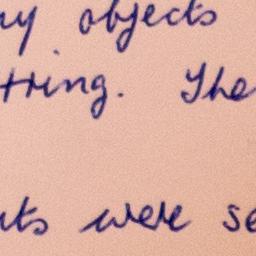 ny objects
tring. The
nts were se